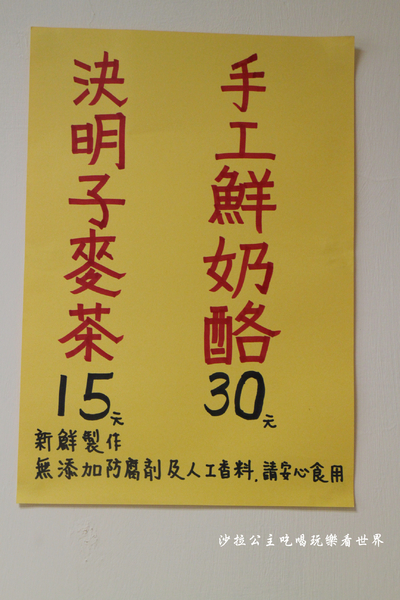 手工鮮奶酪
30元
決明子麥茶
15元
新鮮製作
無添加防腐劑及人工香料.請安心食用
沙拉公主吃喝玩樂看世界